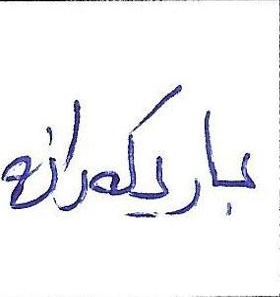 یاریکەرانە